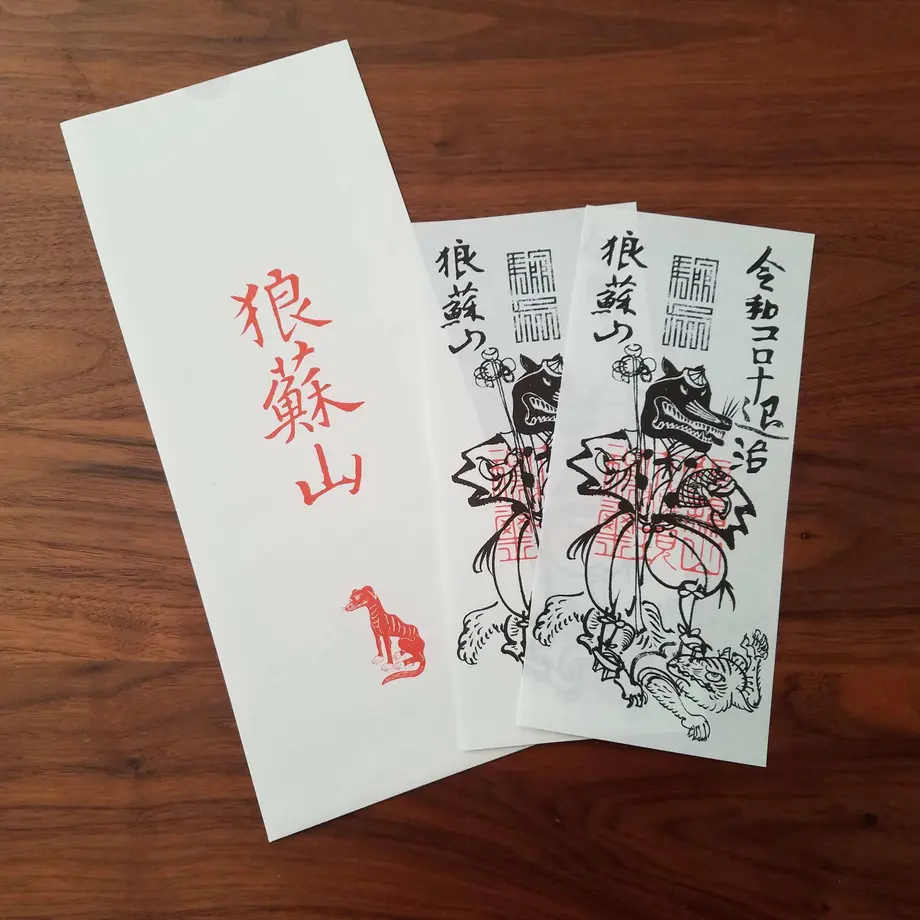 狼蘇山
狼蘇山
令和コロナ退治
狼蘇山